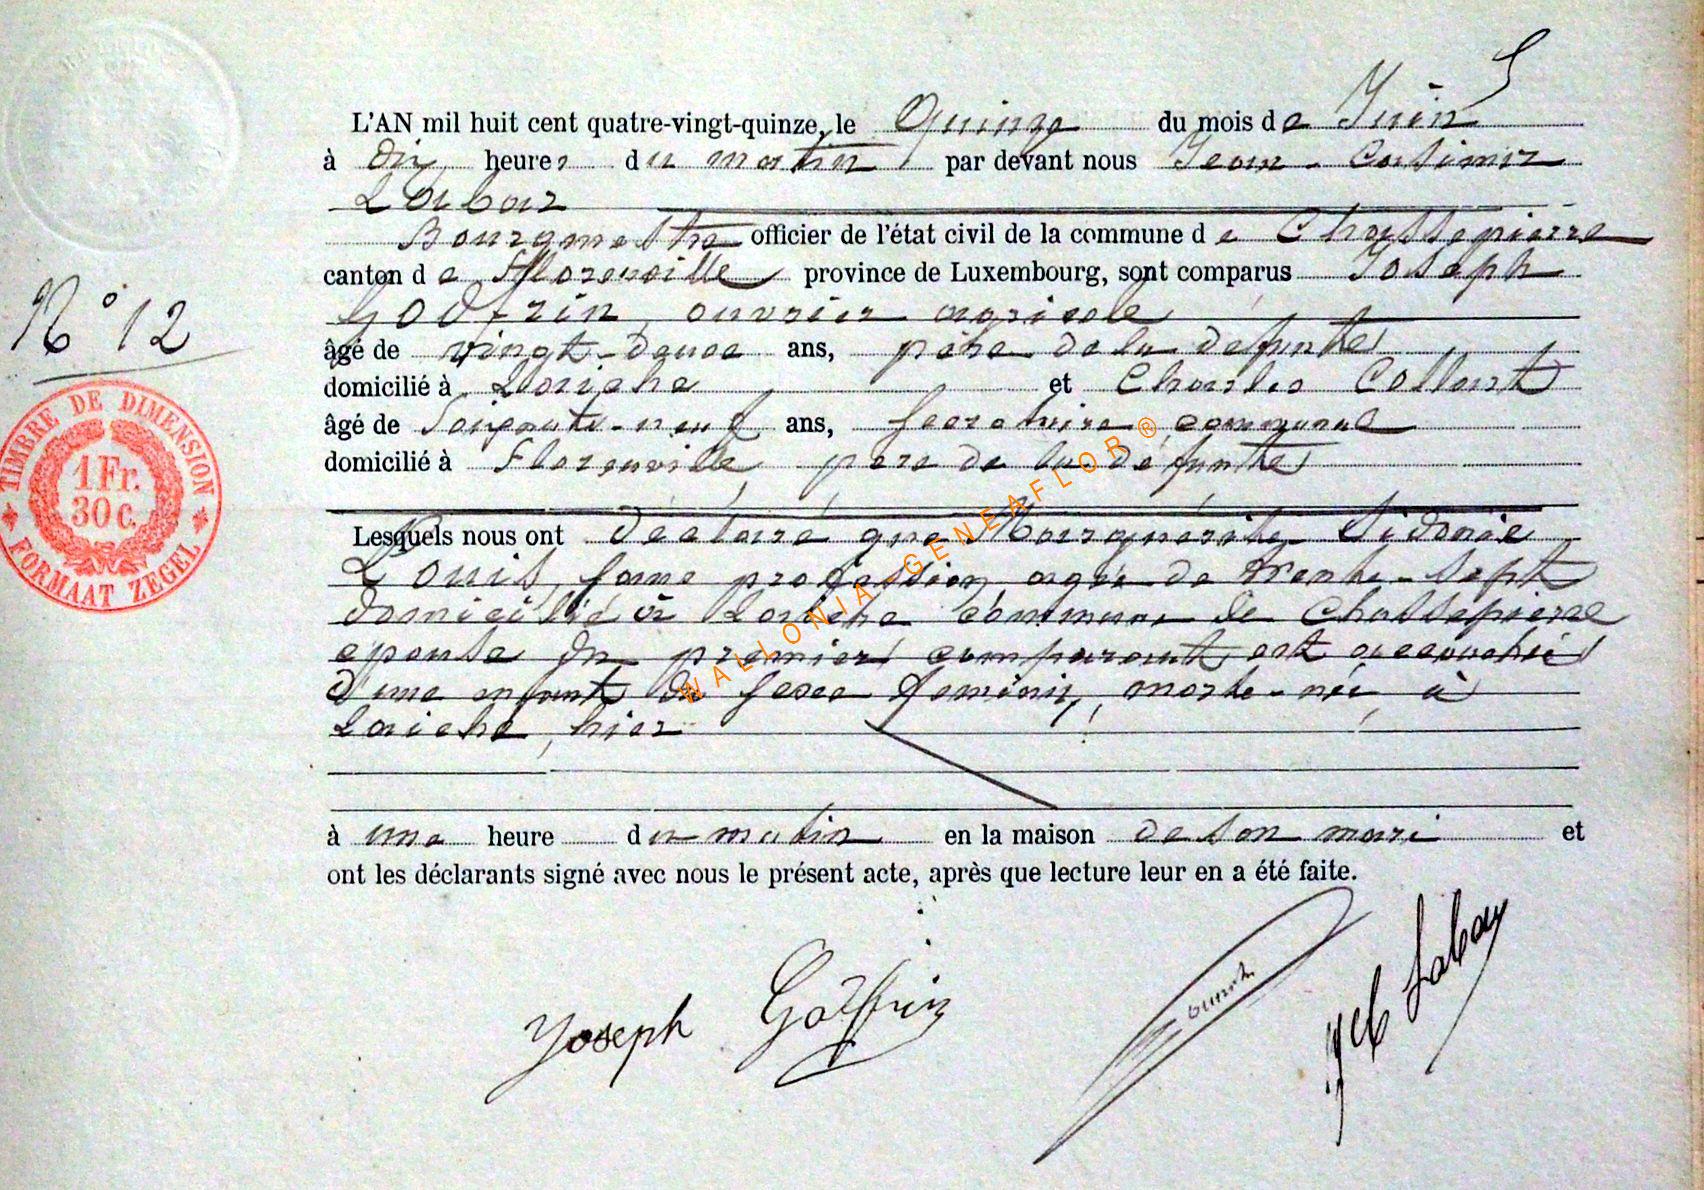 L'AN mil huit cent quatre-vingt-quinze, le Quinze du mois de Juin
à dix heures du matin par devant nous Jean-Casimir
Labar
Bourgmestre officier de l'état civil de la commune de Chassepierre
canton de Florenville province de Luxembourg, sont comparus Joseph
Godfrin, ouvrier agricole
âgé de vingt-deux ans, père de la défunte
domicilié à Laiche et Charles Collart
âgé de Soixante-neuf ans, secrétaire communal
domicilié à Florenville, père de la défunte
Lesquels nous ont déclaré que Marguérite Sidonie
Louis, sans profession agée de trente-sept
domiciliée à Laiche commune de Chassepierre
épouse du premier comparant est accouchée
d'une enfant du sexe feminin, morte-née, à
Laiche, hier
à une heure du matin en la maison de son mari et
ont les déclarants signé avec nous le présent acte, après que lecture leur en a été faite.
N° 12
TIMBRE DE DIMENSION
1 Fr.
30 c.
FORMAAT ZEGEL
WALLONIA-GENEAFLOR®
Joseph Godfrin
JC Labar